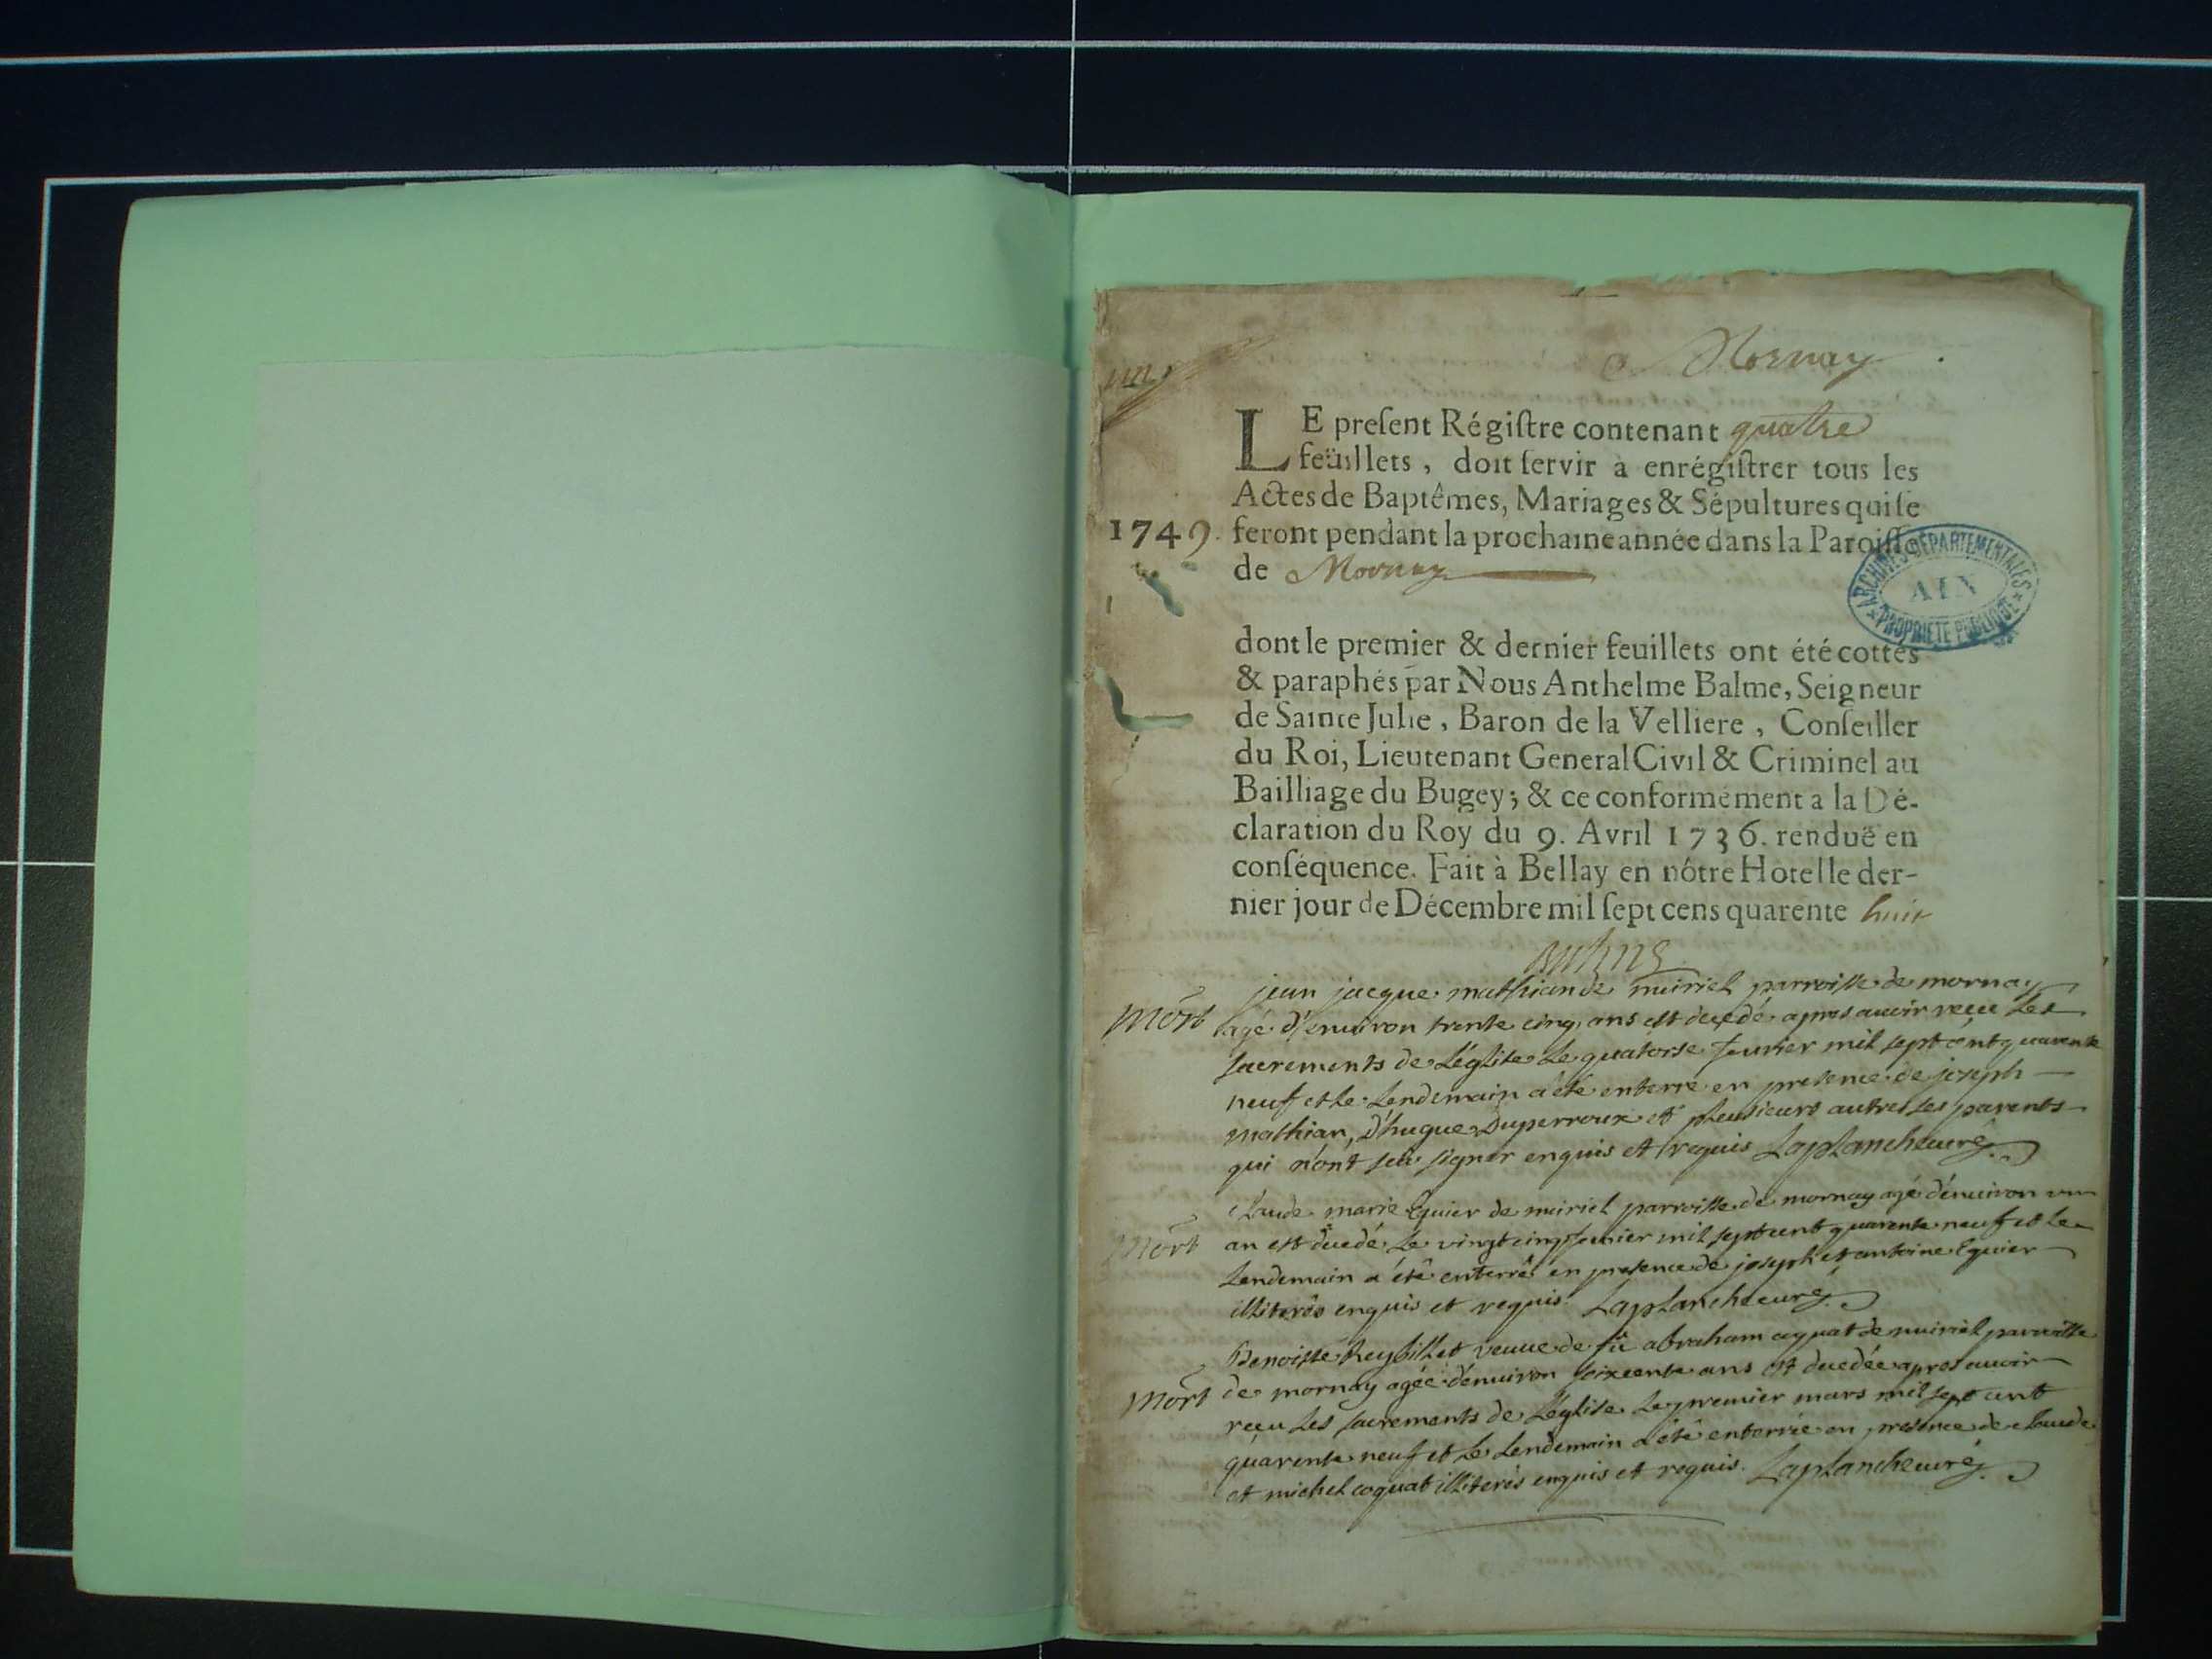 Mornay
LE preſent Régiſtre contenant quatre
feüillets, doit ſervir à enrégiſtrer tous les
Actes de Baptêmes, Mariages & Sépultures qui ſe
1749. feront pendant la prochaine année dans la Paroiſſe
de Mornay
ARCHIVES DÉPARTEMENTALES
AIN
PROPRIÉTÉ PUBLIQUE
dont le premier & dernier feuillets ont été cottés
& paraphés par Nous Anthelme Balme, Seigneur
de Sainte Julie, Baron de la Velliere, Conſeiller
du Roi, Lieutenant General Civil & Criminel au
Bailliage du Bugey; & ce conformément a la Dé-
claration du Roy du 9. Avril 1736. renduë en
conſéquence. Fait à Bellay en nôtre Hotel le der-
nier jour de Décembre mil ſept cens quarente huit
jean jacque mathian de muiriel parroisse de mornay
Mort agé d'enuiron trente cinq ans est decedé apres auoir receu les
sacrements de Léglise Le quatorse feurier mil sept cent quarente
neuf et le Lendemain a été enterré en presence de joseph
mathian, d'hugue Duperroux et plusieurs autres ses parents
qui n'ont sçu signer enquis et requis Laplanche curé
Claude marie Eguier de muiriel parroisse de mornay agé d'enuiron un
Mort an est decedé Le vingt cinq feurier mil sept cent quarente neuf et le
Lendemain a été enterré en presence de joseph et antoine Eguier
illiterés enquis et requis Laplanche curé
Benoiste Reybillet veuue de fû abraham coquat de muiriel parroisse
Mort de mornay agée d'enuiron soixcente ans est decedée apres auoir
reçu Les sacrements de Léglise Le premier mars mil sept cent
quarente neuf et Le Lendemain a été enterrée en presence de claude
et michel coquat illiterés enquis et requis. Laplanche curé